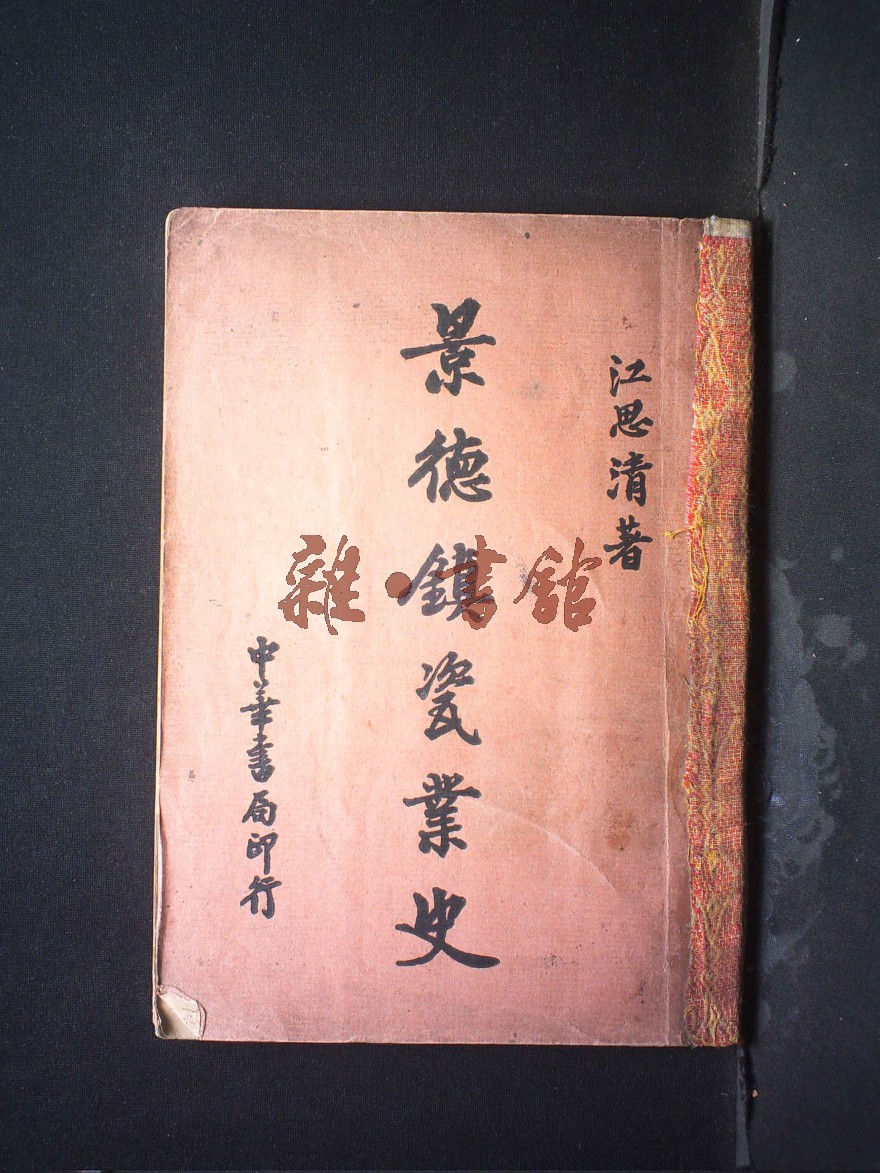 江思清著
景德鎮瓷業史
中華書局印行
雜·書館